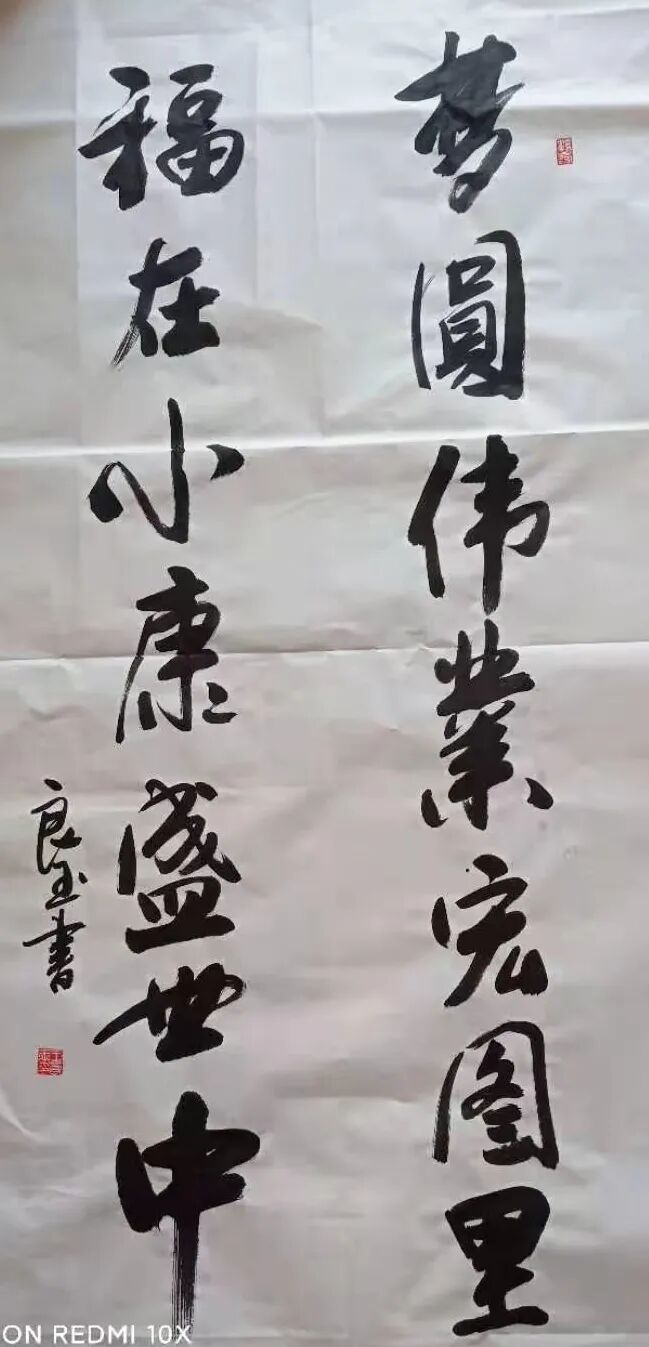 梦圓伟業宏图里
福在小康盛世中
良玉書
ON REDMI 10X